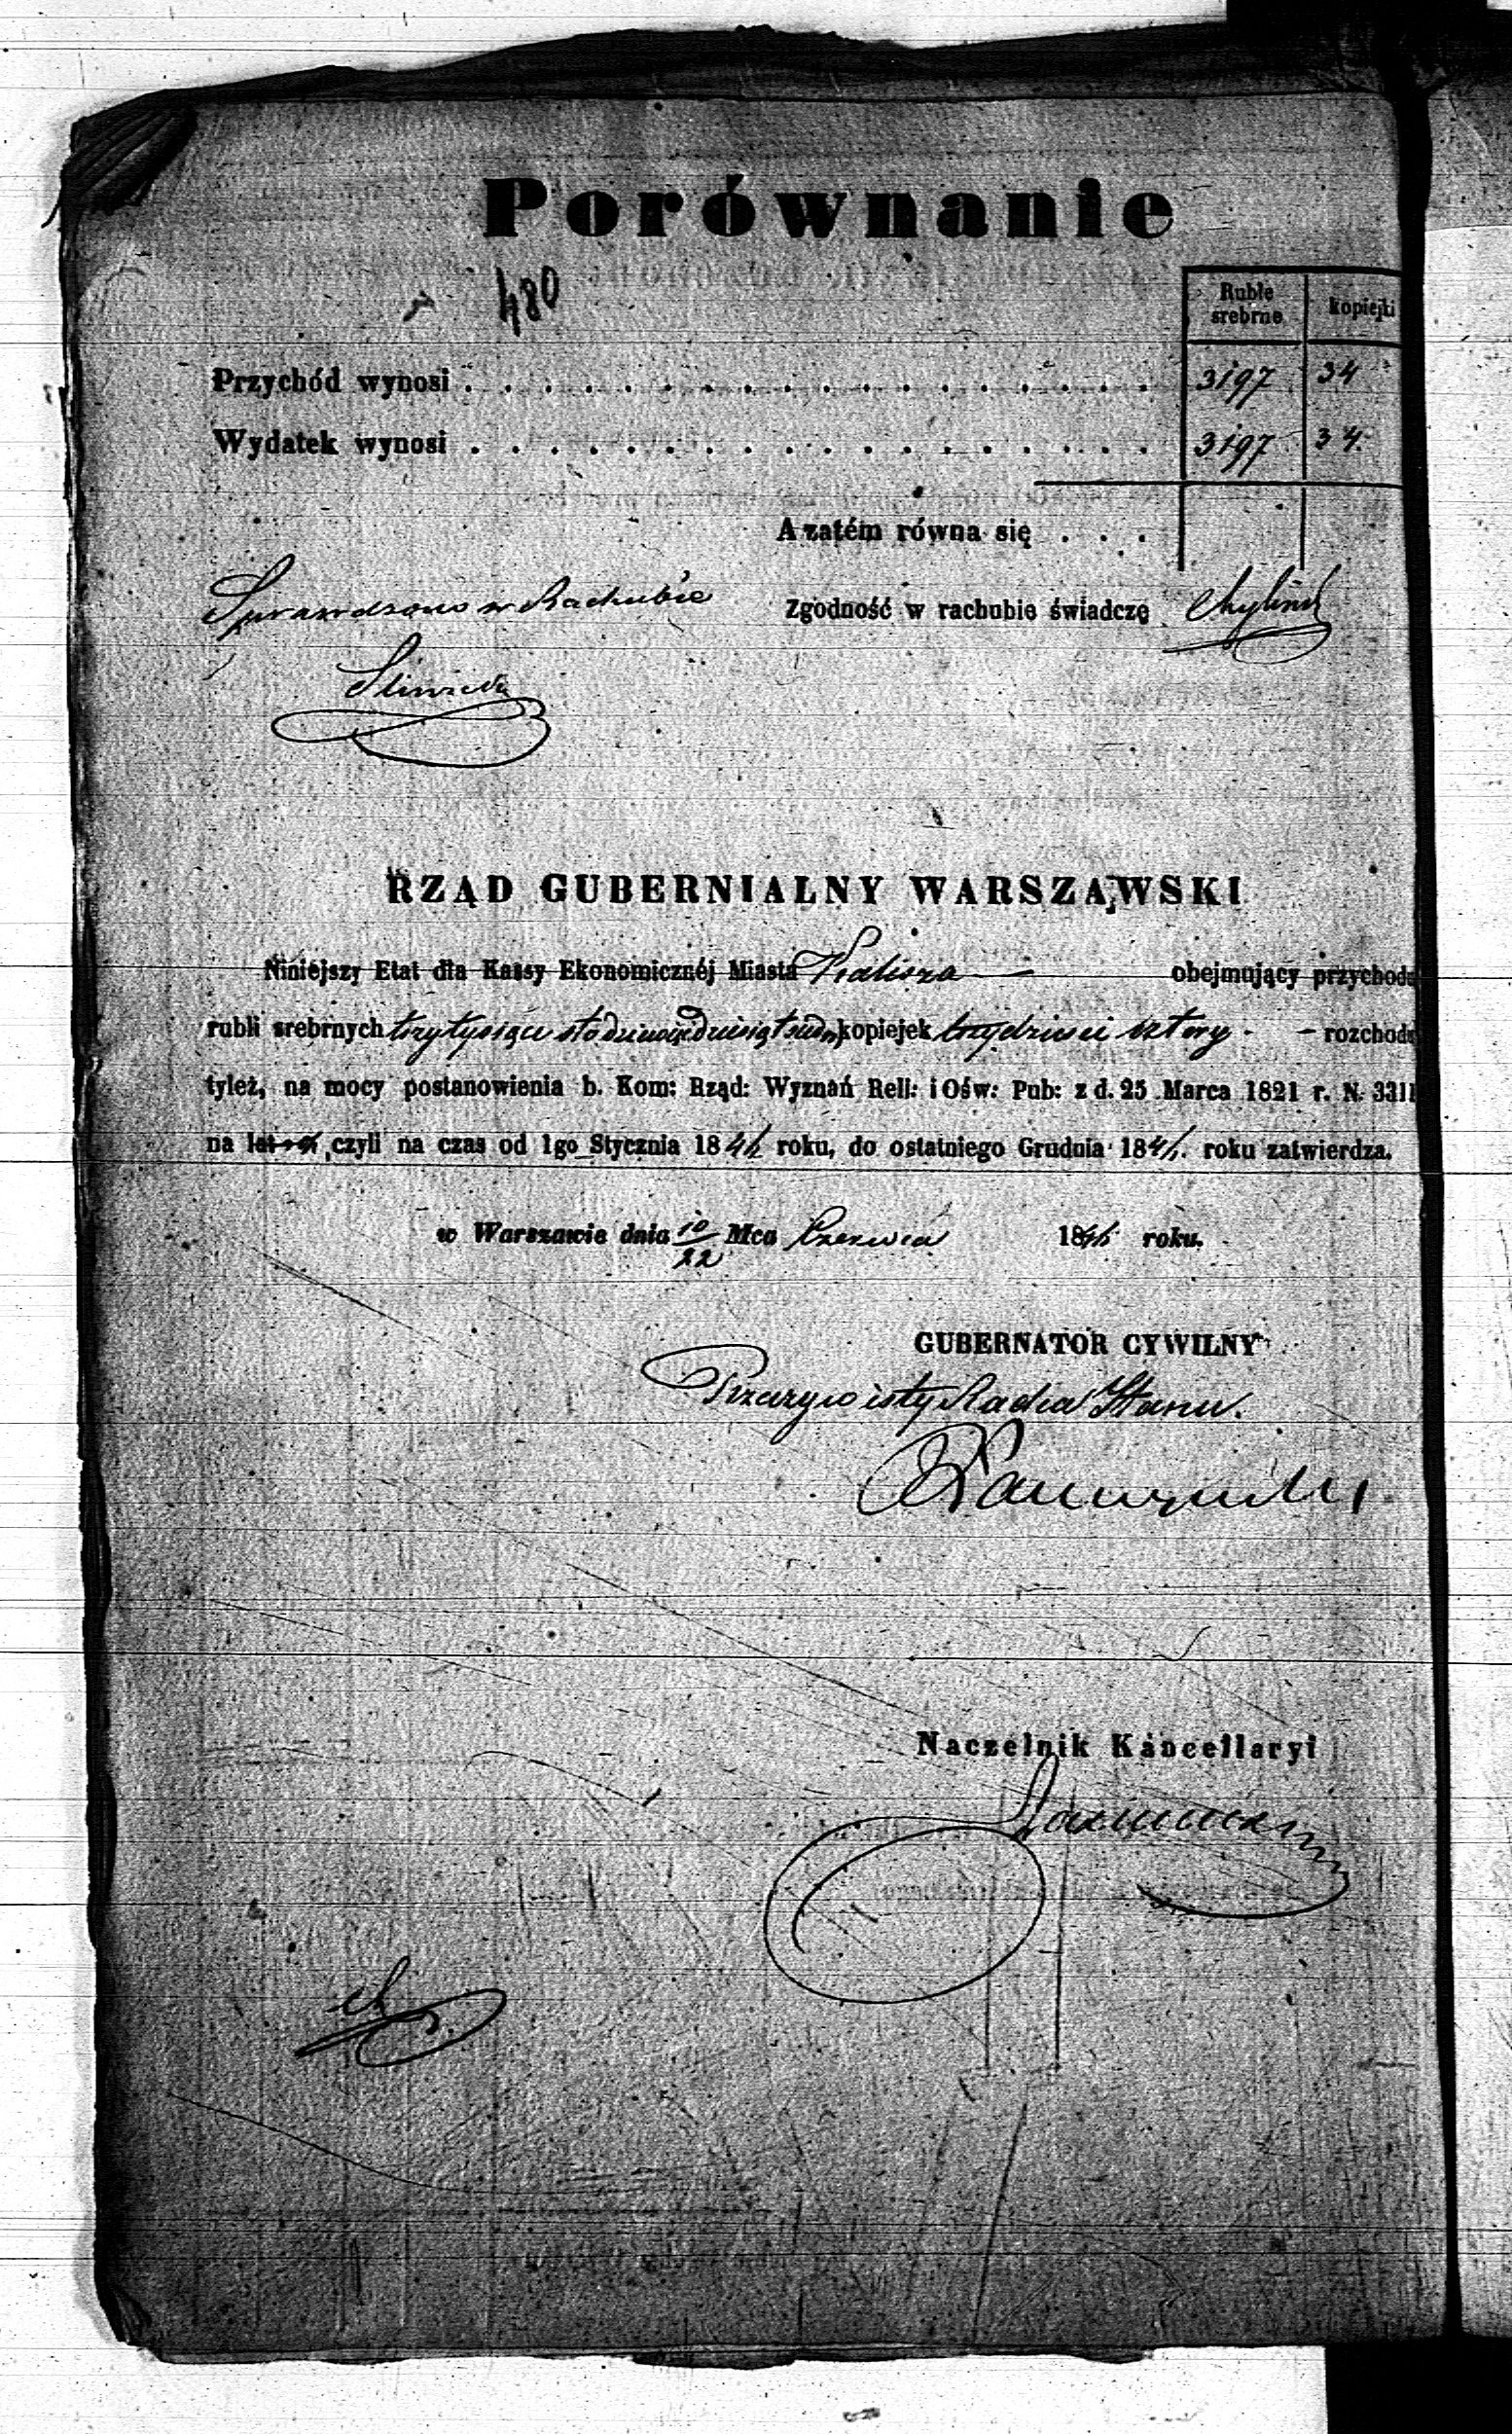 Porównanie
480
Ruble srebrne kopiejki
Przychód wynosi . . . . . . . . . . . . . . . . . . 3197 34
Wydatek wynosi . . . . . . . . . . . . . . . . . . 3197 34.
A zatém równa się . . .
Sprawdzono w Rachubie Zgodność w rachubie świadczę
RZĄD GUBERNIALNY WARSZAWSKI
Niniejszy Etat dla Kassy Ekonomicznéj Miasta Kalisza — obejmujący przychodu
rubli srebrnych trzy tysiące sto dziewięćdziesiąt siedm kopiejek trzydzieści cztery - rozchodu
tyleż, na mocy postanowienia b. Kom: Rząd: Wyznań Reli: i Ośw: Pub: z d. 25 Marca 1821 r. N. 3311
na czyli na czas od 1go Stycznia 184 roku, do ostatniego Grudnia 184 roku zatwierdza.
w Warszawie dnia 10/22 Mca Czerwca 184 roku.
GUBERNATOR CYWILNY
Rzeczywisty Radca Stanu.
Naczelnik Kancellaryi